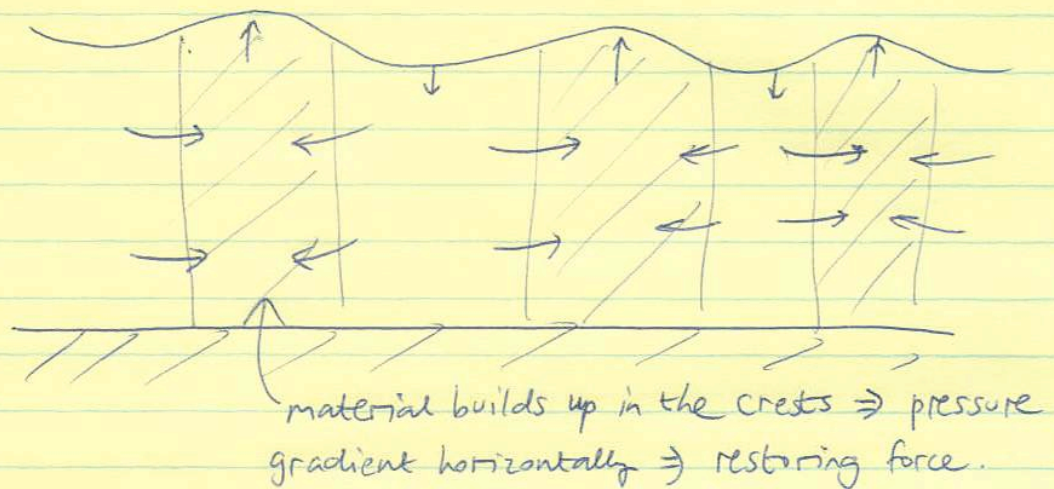 material builds up in the crests ⇒ pressure
gradient horizontally ⇒ restoring force.